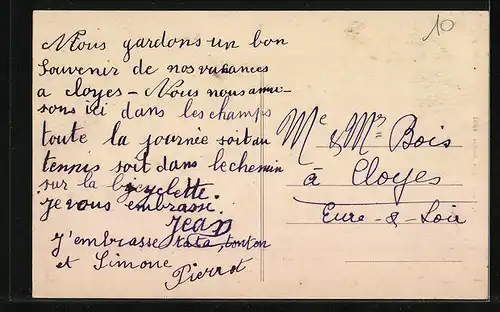 10
Nous gardons un bon
souvenir de nos vacances
a cloyes - Nous nous amu-
sons ici dans les champs
toute la journée soit au
tennis soit dans le chemin
sur la bycyclette.
je vous embrasse.
Jean
J'embrasse tata, tonton
et Simone
Pierrot
Me & Mr Bois
à Cloyes
Eure-&-Loir